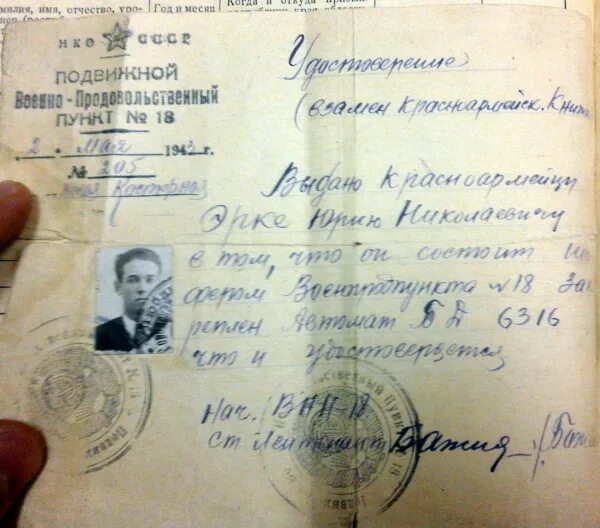 милия, имя, отчество,
Год и месяц
Когда и откуда
НКО СССР
ПОДВИЖНОЙ
Военно-Продовольственный
ПУНКТ № 18
2 мая 1943 г.
№ 205
Касторная
Удостоверение
(взамен Красноармейск. Книж
Выдано Красноармейцу
Эрке Юрию Николаевичу
в том, что он состоит
фером Военпродпункта №18 Зак
реплен Автомат БД 6316
что и удостоверяется
Нач. ВПП-18
ст Лейтенант